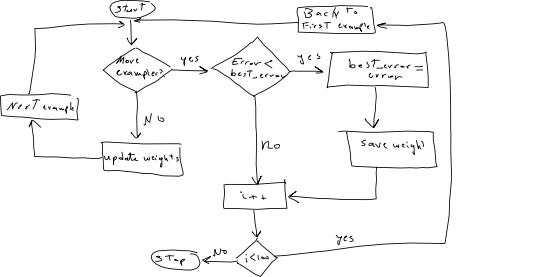 Start
Back to
First example
More
examples?
yes
Error <
best_error
yes
best_error =
error
Next example
No
update weights
No
save weights
i++
Stop
No
i<100
yes